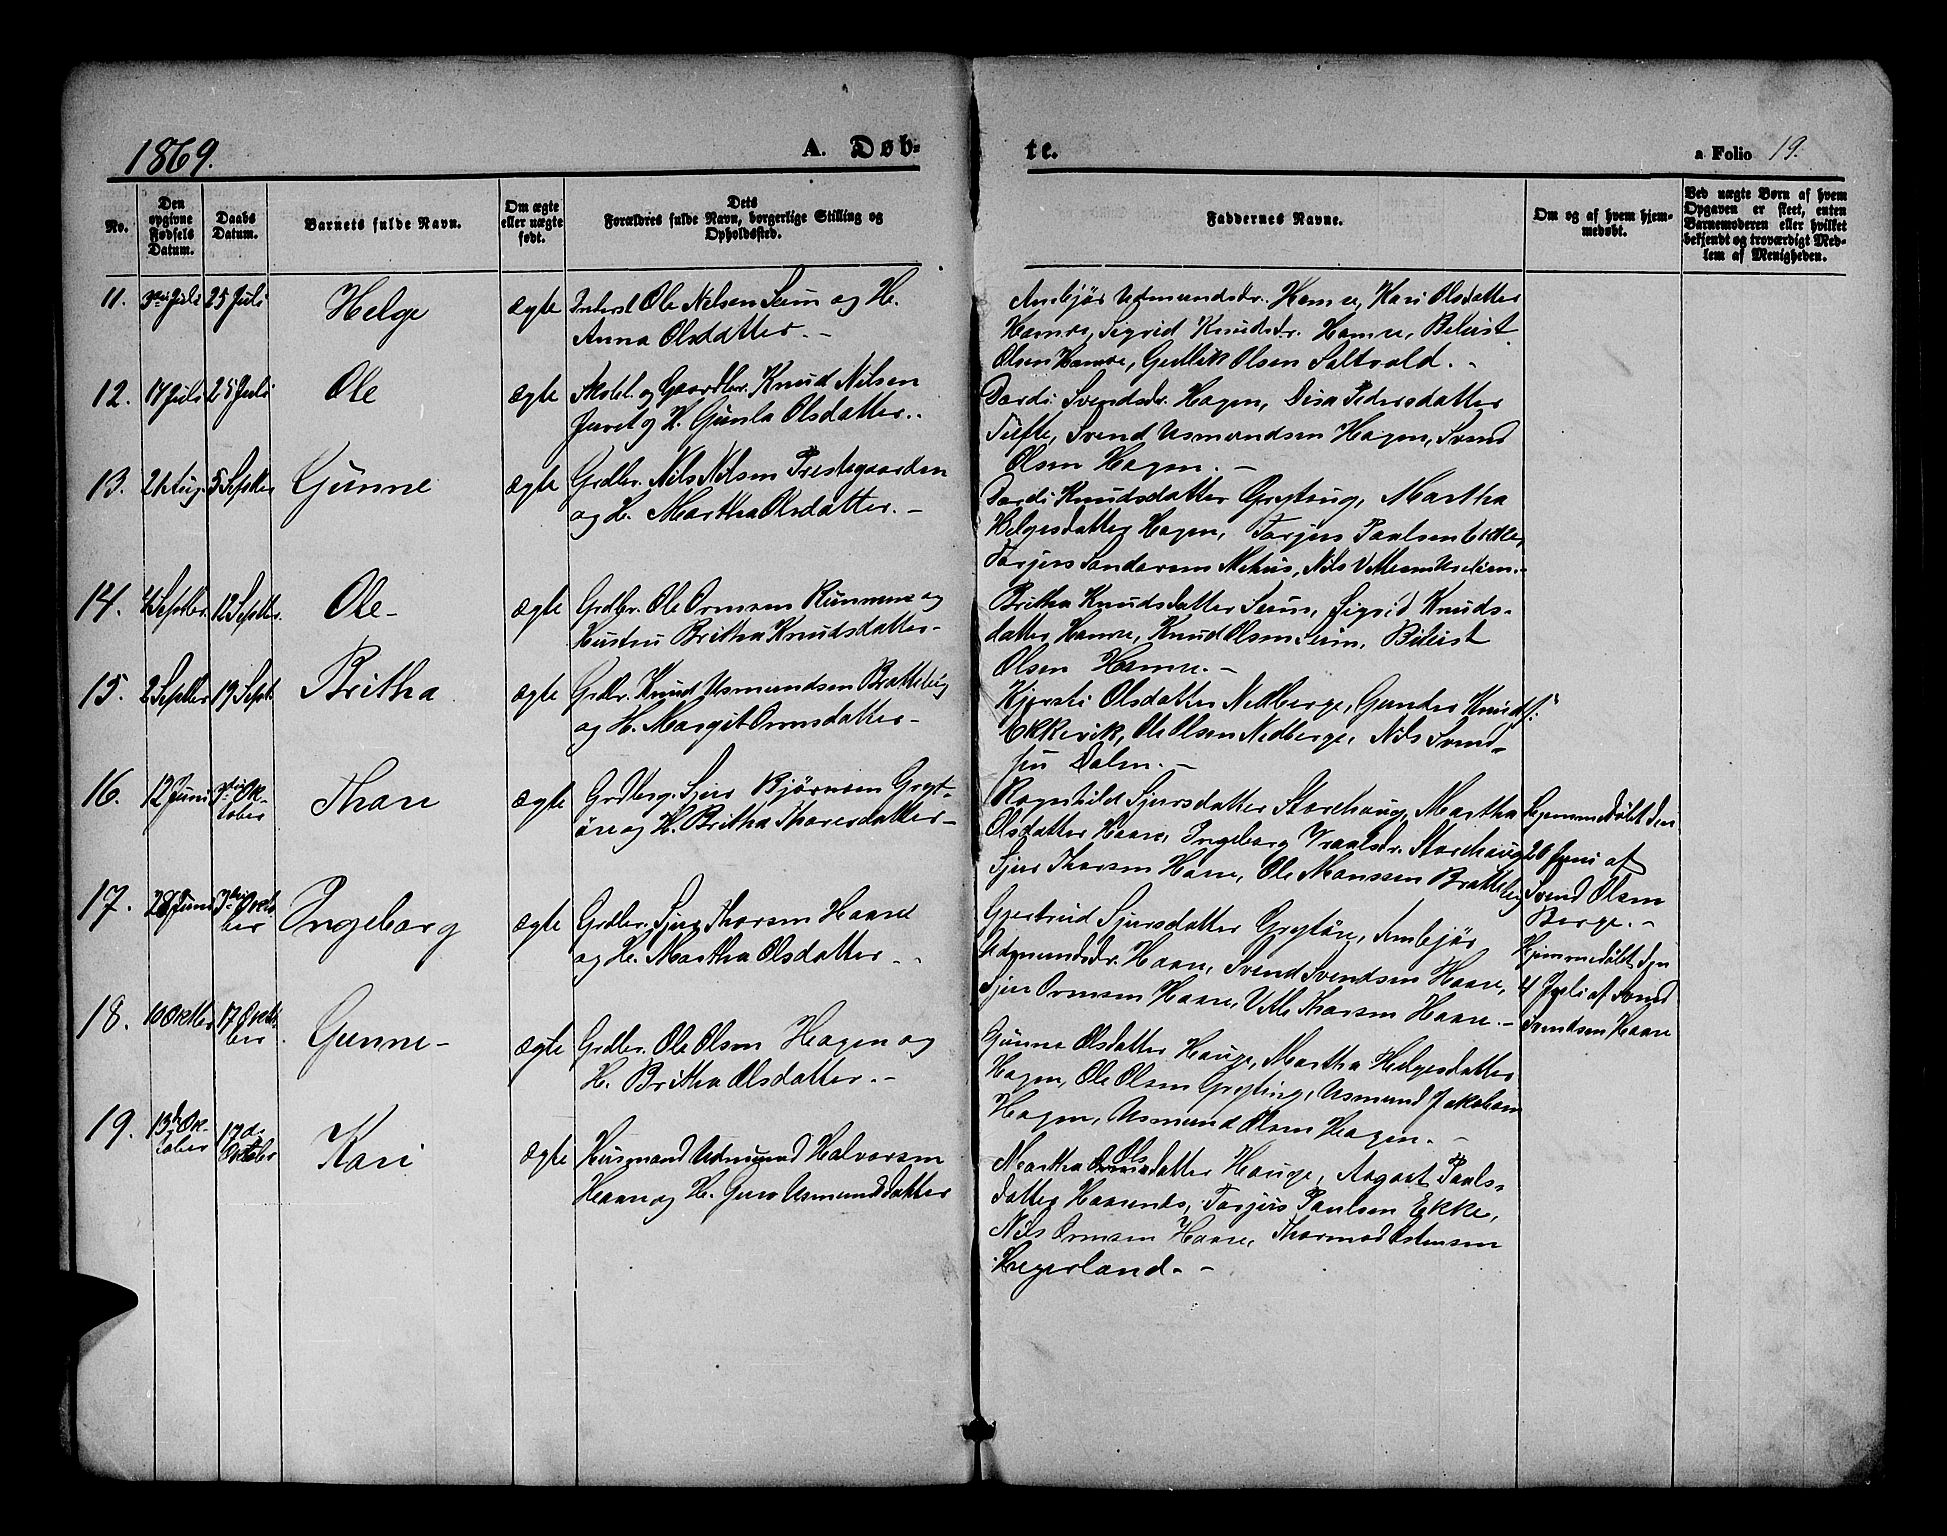 1869.
A. Døb-
te.
a Folio 19.
No.
Den opgivne Fødsels Datum.
Daabs Datum.
Barnets fulde Navn.
Om ægte eller uægte født.
Dets
Forældres fulde Navn, borgerlige Stilling og
Opholdssted.
Faddernes Navne.
Om og af hvem hjem-
medøbt.
Ved uægte Børn af hvem
Opgaven er skeet, enten
Barnemoderen eller hvilket
bekjendt og troværdigt Med-
lem af Menigheden.
11. 3die Juli 25 Juli Helge ægte Inderst Ole Nilsen Seim og H.
Anna Olsdatter. -
Ambjør Udmundsdr. Hamre, Kari Olsdatter
Hamre, Sigrid Knudsdr. Hamre, Bileist
Olsen Hamre, Gudlik Olsen Saltvold. -
12. 17 Juli 25 Juli Ole ægte Skolel. og Gaardbr. Knud Nilsen
Juvet og H. Gunla Olsdatter..
Dordi Svendsdr. Hagen, Disa Pedersdatter
Tufte, Svend Asmundsen Hagen, Svend
Olsen Hagen. -
13. Aug. 5 Septber Gunne ægte Grdbr. Nils Nilsen Prestegaarden
og H. Martha Olsdatter. -
Dordi Knudsdatter Gryting, Martha
Helgesdatter Hagen, Torjers Paulsen
Torjers Sondresen Mehus, Nils
14. 4 Septber. 12 Septber. Ole - ægte Grdbr. Ole Ormsen Rimmene og
Hustru Britha Knudsdatter -
Britha Knudsdatter Seim, Sigrid Knuds-
datter Hamre, Knud Olsen Seim, Bileist
Olsen Hamre. -
15. 2 Septber 19 Sept. Britha ægte Grdbr. Knud Asmundsen Bratteteig
og H. Margit Ormsdatter -
Kjersti Olsdatter Nedberge, Gunder Knuds.
Ekkevik, Ole Olsen Nedberge, Nils Svend-
sen Dalen. -
16. 12 Juni 3die Ok-
tober Thore ægte Grdberg. Sjur Bjørnsen Gryt-
øre og H. Britha Thoresdatter -
Ragnhild Sjursdatter Storehaug, Martha
Olsdatter Haare, Ingeborg Vraalsdr. Storehaug
Sjur Thorsen Haare, Ole Monssen Bratteteig
Hjemmedøbt den
20 Juni af
Svend Olsen
Berge. -
17. 28 Juni 3die Octo
ber Ingeborg ægte Grdbr. Sjur Thorsen Haare
og H. Martha Olsdatter - -
Gjertrud Sjursdatter Grytøre, Ambjør
Udmundsdr. Haare, Svend Svendsen Haare,
Sjur Ormsen Haare, Vetle Thorsen Haare. -
Hjemmedøbt den
4 Juli af Svend
Svendsen Haare
18. 10 Octber 17 Octo
ber Gunne - ægte Grdbr. Ole Olsen Hagen og
H. Britha Olsdatter. -
Gunne Olsdatter Hauge, Martha Helgesdatter
Hagen, Ole Olsen Grytting, Asmund Jakobsen
Hagen, Asmund Olsen Hagen. -
19. 13de Ok-
tober 17de
October Kari ægte Husmand Udmund Halvorsen
Haare og H. Guro Asmundsdatter
Martha Olsdatter Hauge, Aagaat Paals-
datter Haarends, Torjers Paulsen Ekke,
Nils Ormsen Haare, Thormod Ostensen
Hegerland. - -